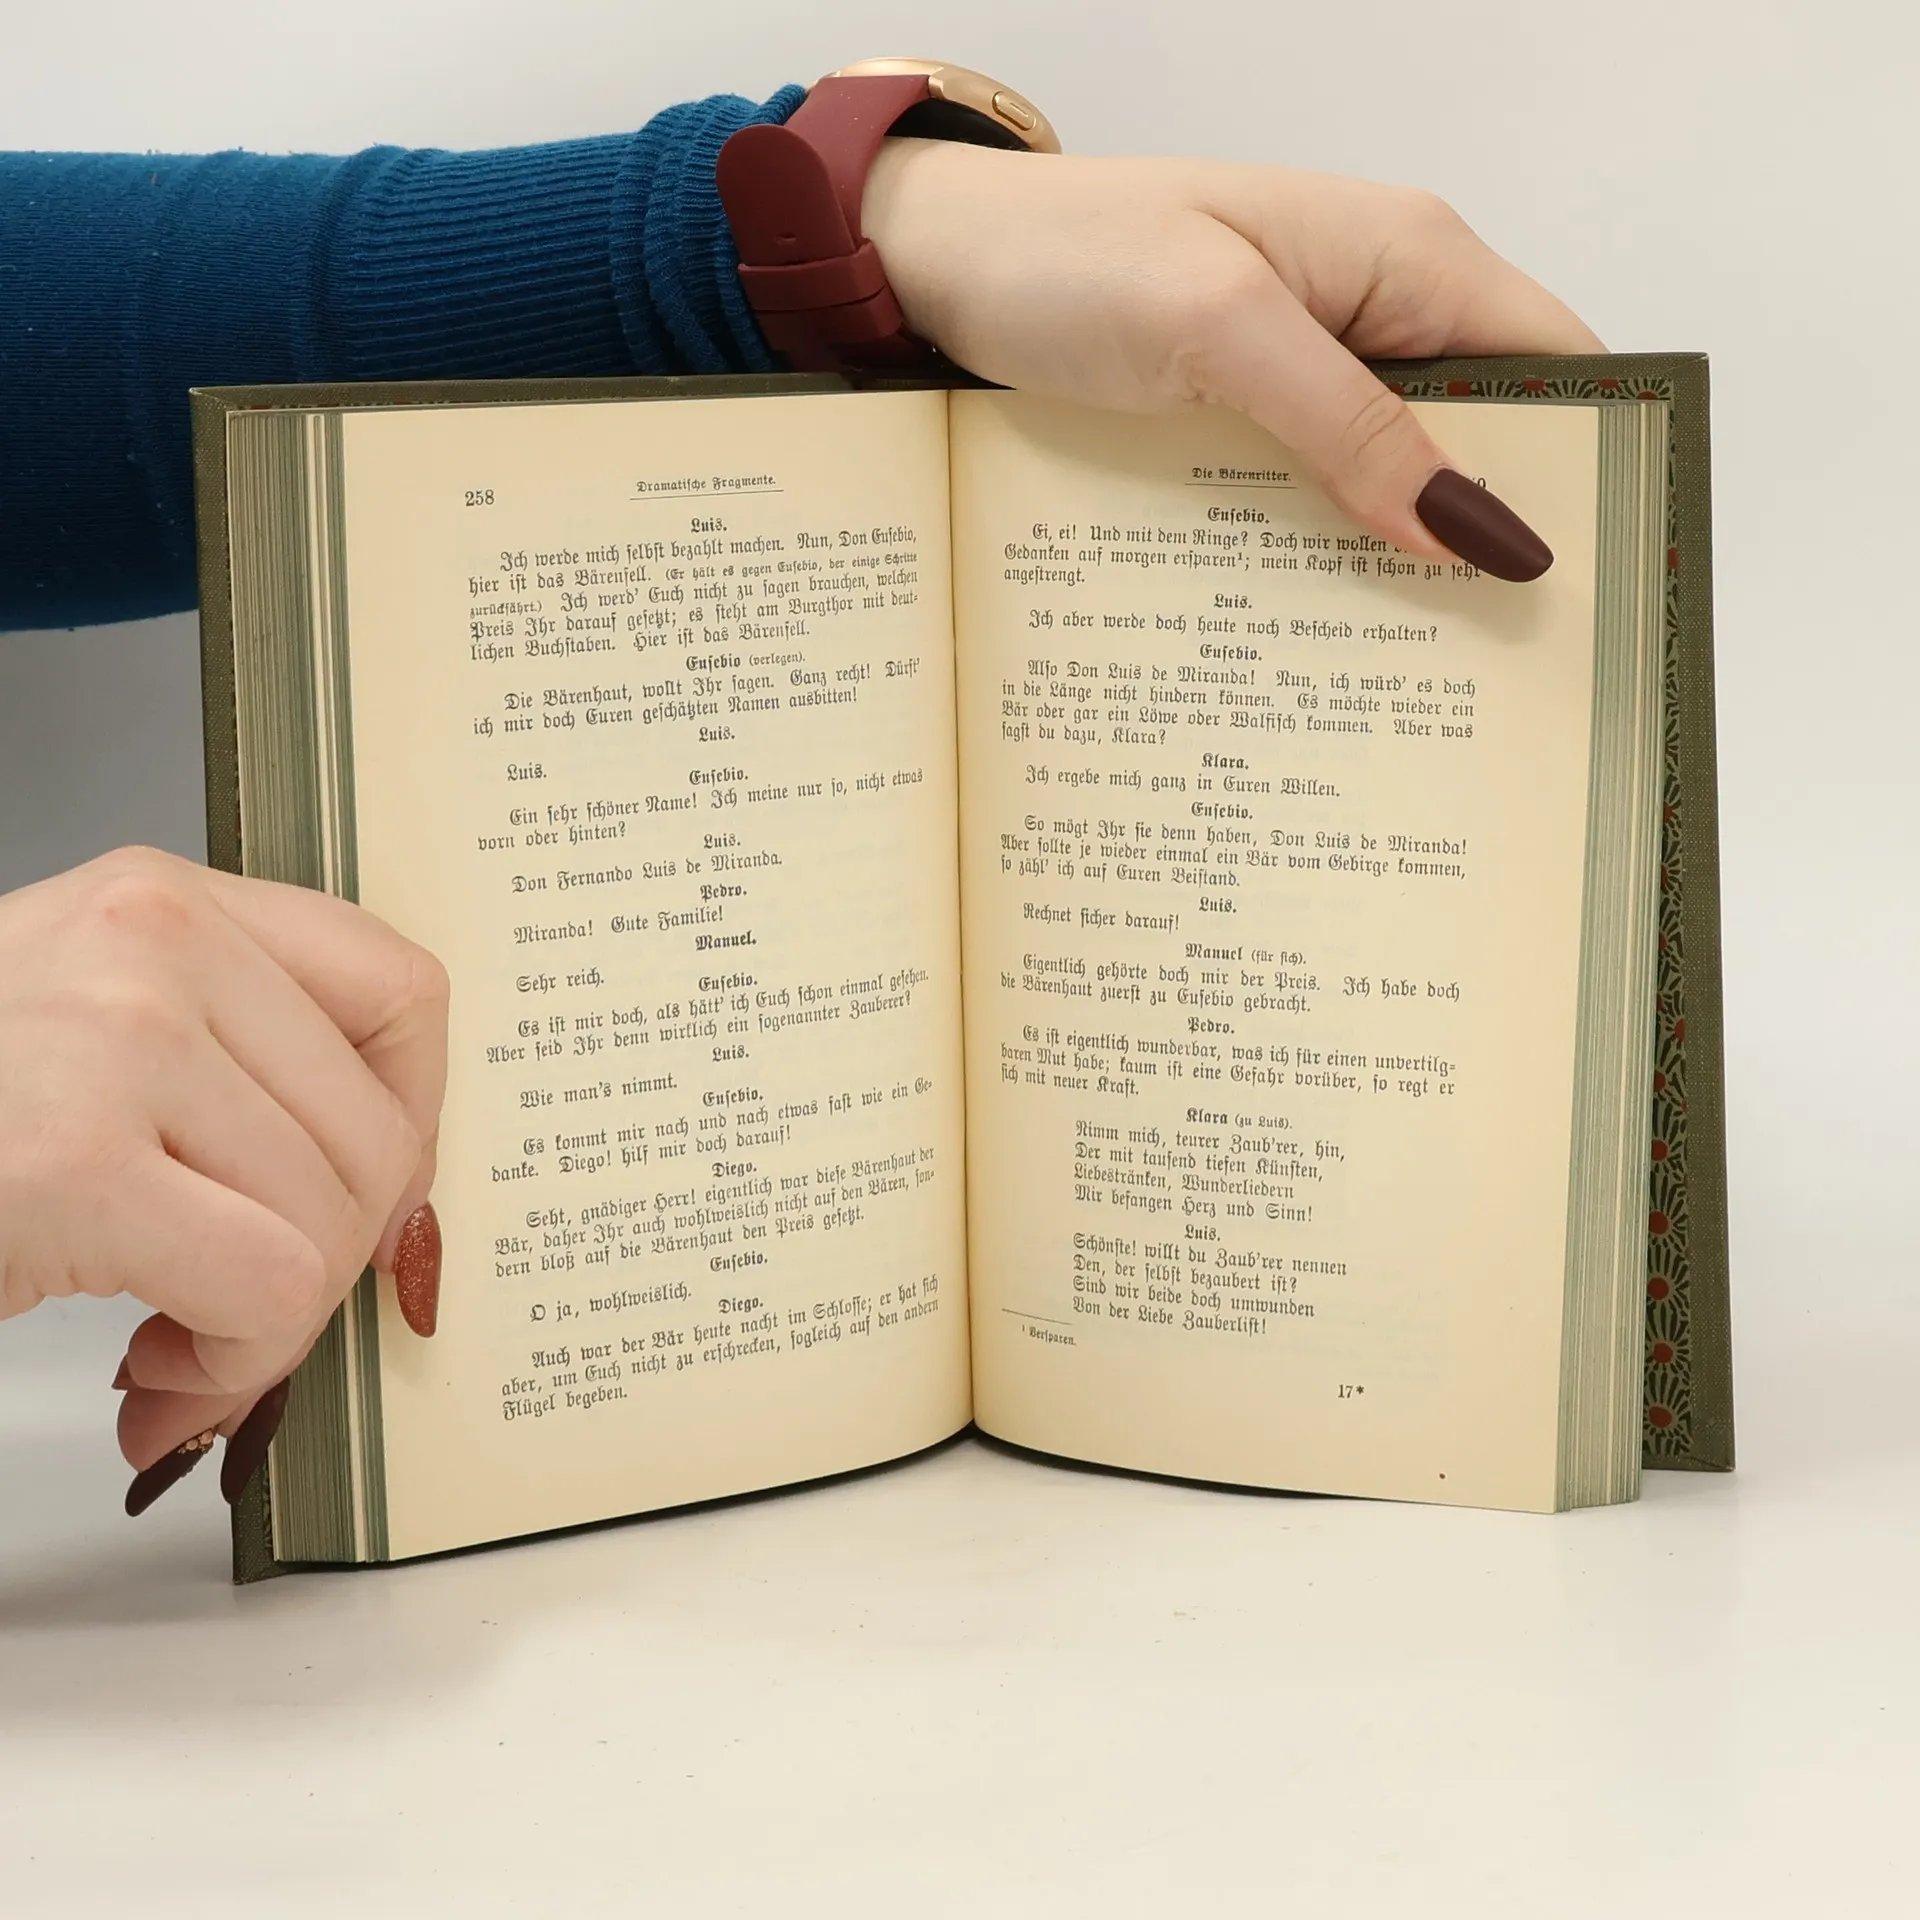 258
Dramatiſche Fragmente.
Luis.
Ich werde mich ſelbſt bezahlt machen. Nun, Don Euſebio,
hier iſt das Bärenfell. (Er hält es gegen Euſebio, der einige Schritte
zurückfährt.) Ich werd' Euch nicht zu ſagen brauchen, welchen
Preis Ihr darauf geſetzt; es ſteht am Burgthor mit deut-
lichen Buchſtaben. Hier iſt das Bärenfell.
Euſebio (verlegen).
Die Bärenhaut, wollt Ihr ſagen. Ganz recht! Dürft'
ich mir doch Euren geſchätzten Namen ausbitten!
Luis.
Luis.
Euſebio.
Ein ſehr ſchöner Name! Ich meine nur ſo, nicht etwas
vorn oder hinten?
Luis.
Don Fernando Luis de Miranda.
Pedro.
Miranda! Gute Familie!
Manuel.
Sehr reich.
Euſebio.
Es iſt mir doch, als hätt' ich Euch ſchon einmal geſehen.
Aber ſeid Ihr denn wirklich ein ſogenannter Zauberer?
Luis.
Wie man's nimmt.
Euſebio.
Es kommt mir nach und nach etwas faſt wie ein Ge-
danke. Diego! hilf mir doch darauf!
Diego.
Seht, gnädiger Herr! eigentlich war dieſe Bärenhaut der
Bär, daher Ihr auch wohlweislich nicht auf den Bären, ſon-
dern bloß auf die Bärenhaut den Preis geſetzt.
Euſebio.
O ja, wohlweislich.
Diego.
Auch war der Bär heute nacht im Schloſſe; er hat ſich
aber, um Euch nicht zu erſchrecken, ſogleich auf den andern
Flügel begeben.
Die Bärenritter.
Euſebio.
Ei, ei! Und mit dem Ringe? Doch wir wollen
Gedanken auf morgen erſparen¹; mein Kopf iſt ſchon zu ſehr
angeſtrengt.
Luis.
Ich aber werde doch heute noch Beſcheid erhalten?
Euſebio.
Alſo Don Luis de Miranda! Nun, ich würd' es doch
in die Länge nicht hindern können. Es möchte wieder ein
Bär oder gar ein Löwe oder Walfiſch kommen. Aber was
ſagſt du dazu, Klara?
Klara.
Ich ergebe mich ganz in Euren Willen.
Euſebio.
So mögt Ihr ſie denn haben, Don Luis de Miranda!
Aber ſollte je wieder einmal ein Bär vom Gebirge kommen,
ſo zähl' ich auf Euren Beiſtand.
Luis.
Rechnet ſicher darauf!
Manuel (für ſich).
Eigentlich gehörte doch mir der Preis. Ich habe doch
die Bärenhaut zuerſt zu Euſebio gebracht.
Pedro.
Es iſt eigentlich wunderbar, was ich für einen unvertilg-
baren Mut habe; kaum iſt eine Gefahr vorüber, ſo regt er
ſich mit neuer Kraft.
Klara (zu Luis).
Nimm mich, teurer Zaub'rer, hin,
Der mit tauſend tiefen Künſten,
Liebestränken, Wunderliedern
Mir befangen Herz und Sinn!
Luis.
Schönſte! willt du Zaub'rer nennen
Den, der ſelbſt bezaubert iſt?
Sind wir beide doch umwunden
Von der Liebe Zauberliſt!
¹ Verſparen.
17*